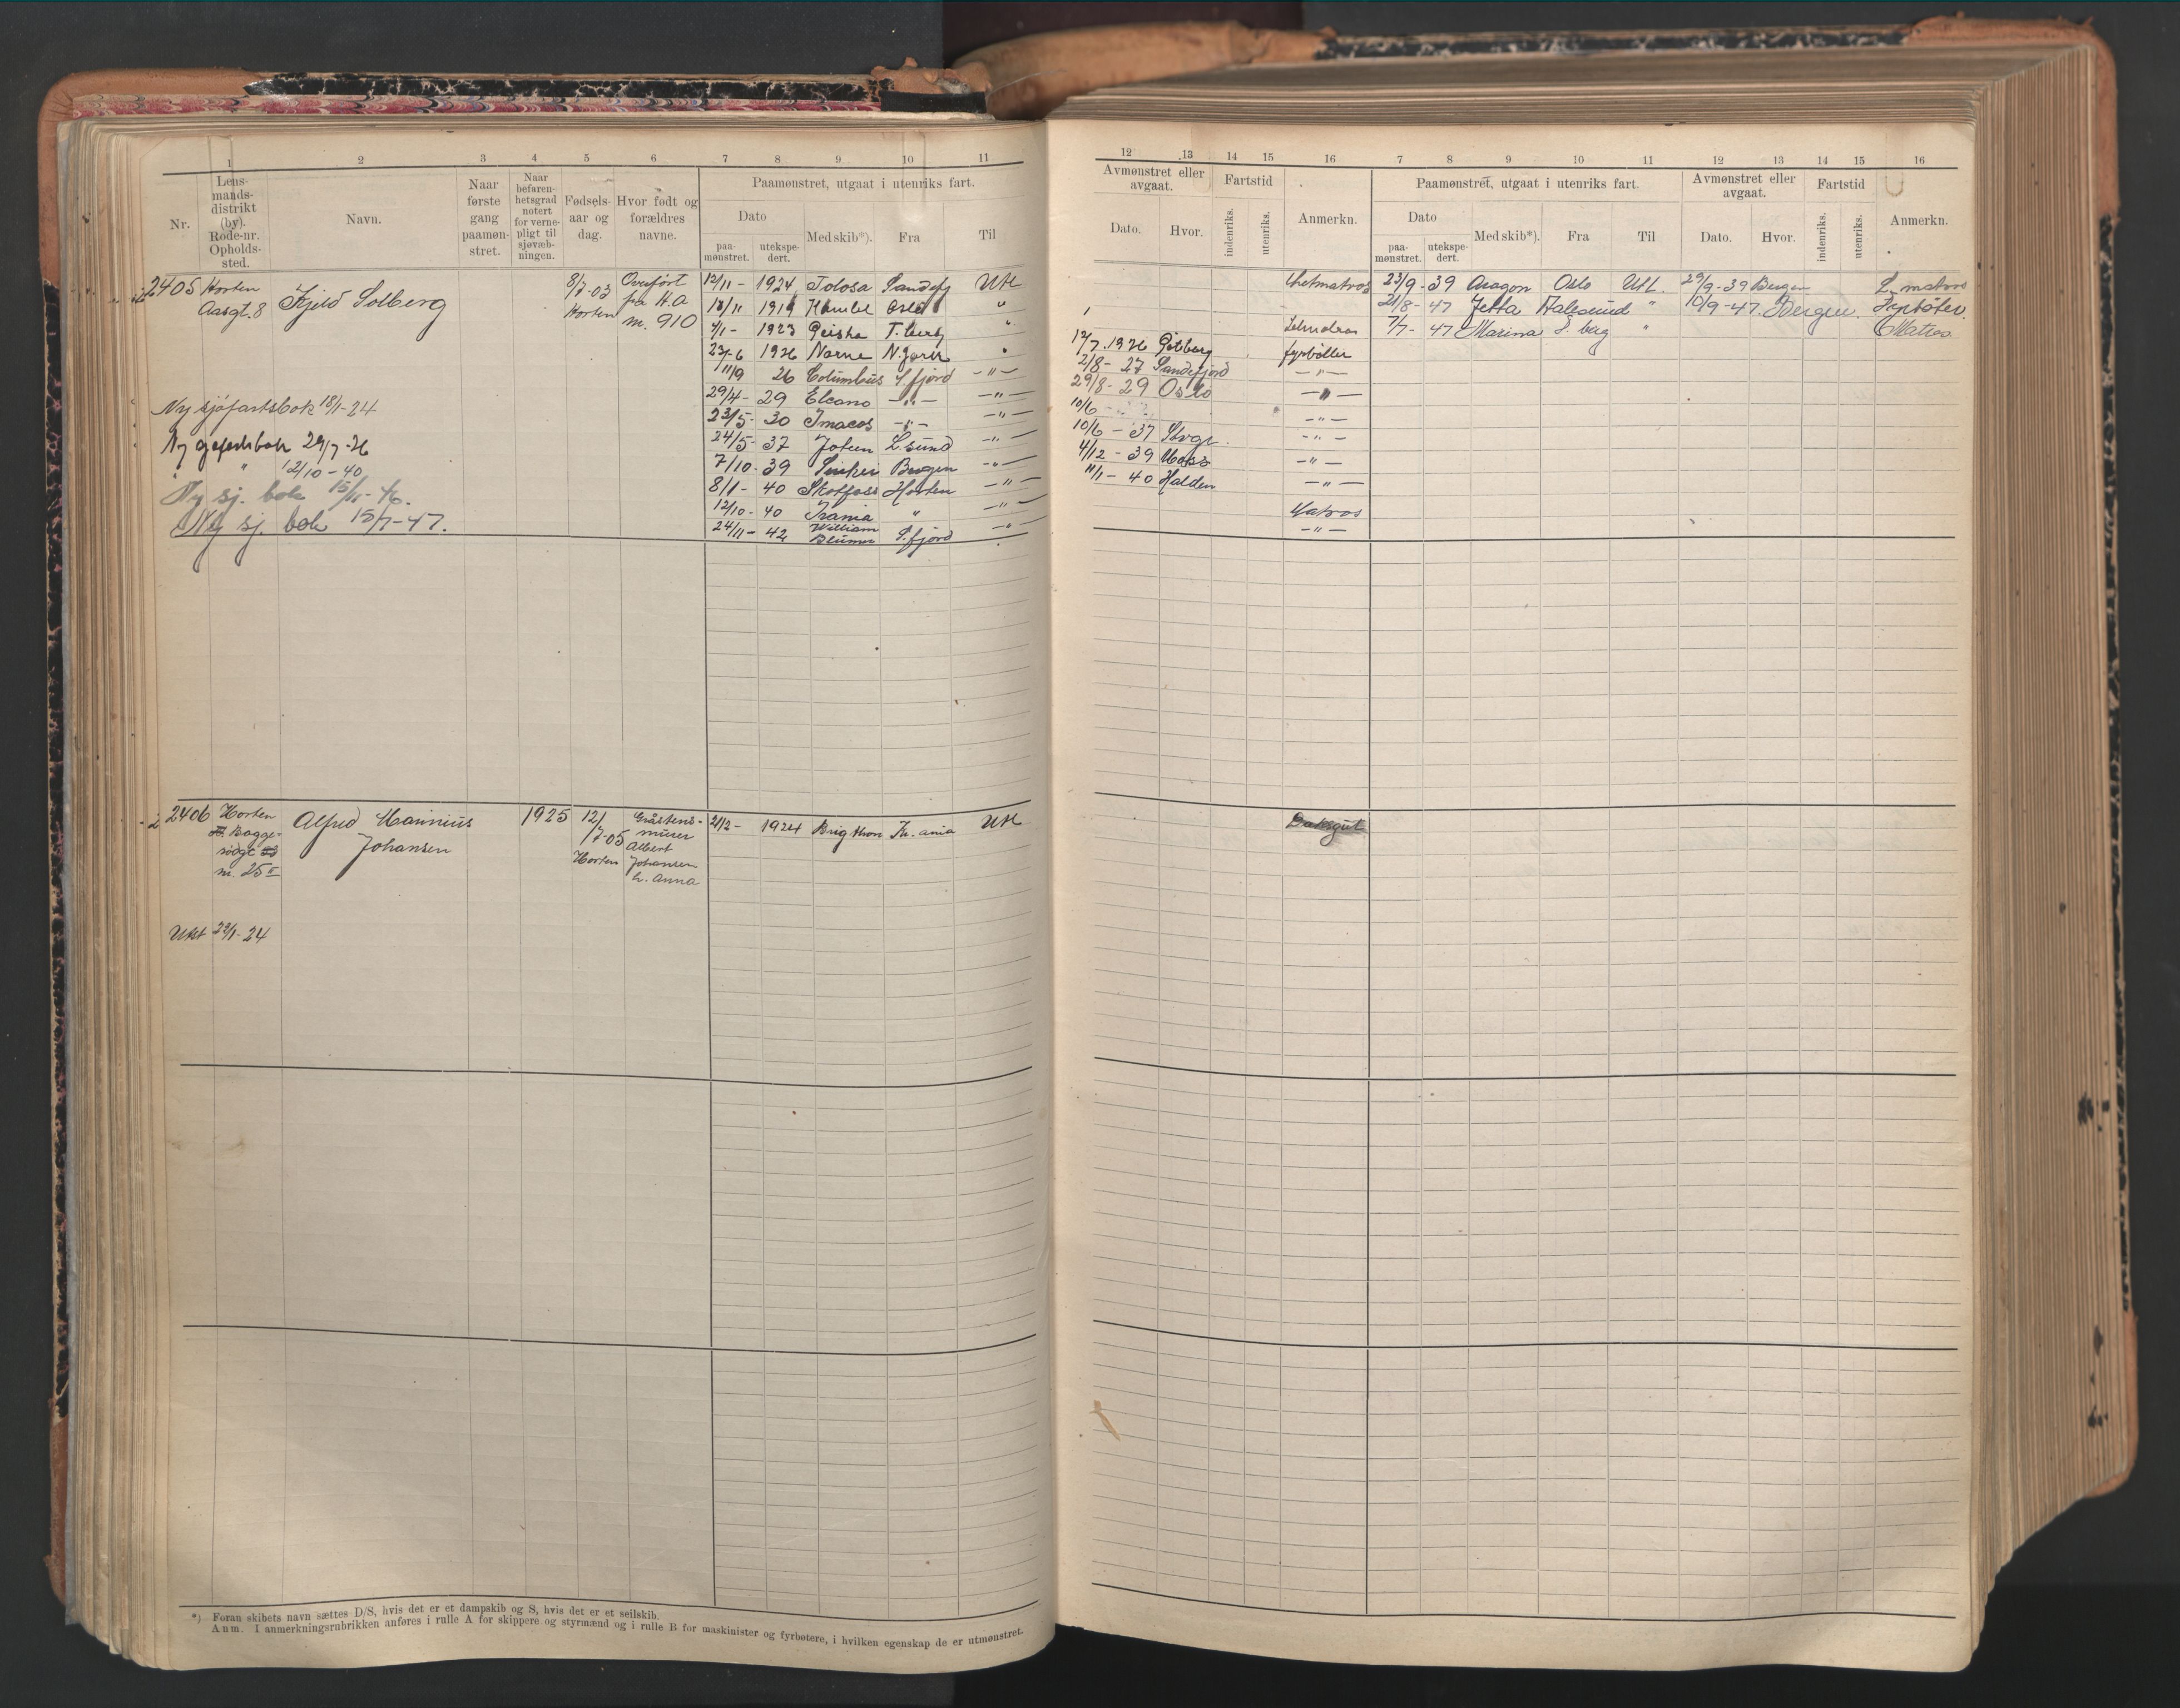 1 2 3 4 5 6 7 8 9 10 11
Nr.
Lens-
mands-
distrikt
(by).
Rode-nr.
Opholds-
sted.
Navn.
Naar
første
gang
paamøn-
stret.
Naar
befaren-
hetsgrad
notert
for verne-
pligt til
sjøvæb-
ningen.
Fødsels-
aar og
dag.
Hvor født og
forældres
navne.
Paamønstret, utgaat i utenriks fart.
Dato
paa-
mønstret.
utekspe-
dert.
Med skib*).
Fra
Til
2405 Horten
Aasgt. 8
Kjeld Solberg
8/7-03
Horten
Overført
fra H.A
nr. 910
12/11 - 1924 Tolosa Sandefj Utl
13/11 1919 Oslo "
4/1 - 1923 Geisha "
23-6 1926 Norne "
11/9 26 Columbus S.fjord -"-
29/4 - 29 Elcano -"- -"-
23/5 - 30 -"- -"-
24/5 - 37 L.sund -"-
7/10 - 39 Bergen -"-
8/1 - 40 Skotfoss Horten -"-
12/10 - 40 Irania " -"-
24/11 - 42 William
Blumer S.fjord -"-
Ny sjøfartsbok 18/1-24
Ny sjøfartsbok 29/7-26
" 12/10-40
Ny sj. bok 15/11-46.
Ny sj. bok 15/7-47.
2406 Horten
Bagge-
rødgt
nr. 25 II
Alfred Marinius
Johansen
1925
12/
/7-05
Horten
Gråstens-
murer
Albert
Johansen
h. Anna
2/2 - 1924 Brighton Kr.ania Utl
Utst 22/1-24
*) Foran skibets navn sættes D/S, hvis det er et dampskib og S, hvis det er et seilskib.
Anm. I anmerkningsrubrikken anføres i rulle A for skippere og styrmænd og i rulle B for maskinister og fyrbøtere, i hvilken egenskap de er utmønstret.
12 13 14 15 16 7 8 9 10 11 12 13 14 15 16
Avmønstret eller
avgaat.
Dato. Hvor.
Fartstid
indenriks.
utenriks.
Anmerkn.
Paamønstret, utgaat i utenriks fart.
Dato
paa-
mønstret.
utekspe-
dert.
Med skib*).
Fra
Til
Avmønstret eller
avgaat.
Dato. Hvor.
Fartstid
indenriks.
utenriks.
Anmerkn.
Letmatros 23/9 - 39 Aragon Oslo Utl. 29/9-39 Bergen L. matros
21/8 - 47 Jetta Aalesund " 10/9-47. Bergen. Fyrbøter
7/7 - 47 Marina S. berg " Matros
12/7. 1926 Gøtborg fyrbøtter
2/8 - 27 Sandefjord -"-
29/8 - 29 Oslo -"-
10/6 -"-
10/6 - 37 Stvgr. -"-
4/12 - 39 Moss -"-
11/1 - 40 Halden -"-
Matros
-"-
Dæksgut